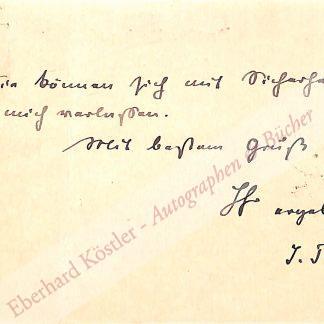 Sie können sich mit Sicherhe
mich verlassen.
Mit bestem Gruß
Ihr ergeb
J.
Eberhard Köstler - Autographen & Bücher